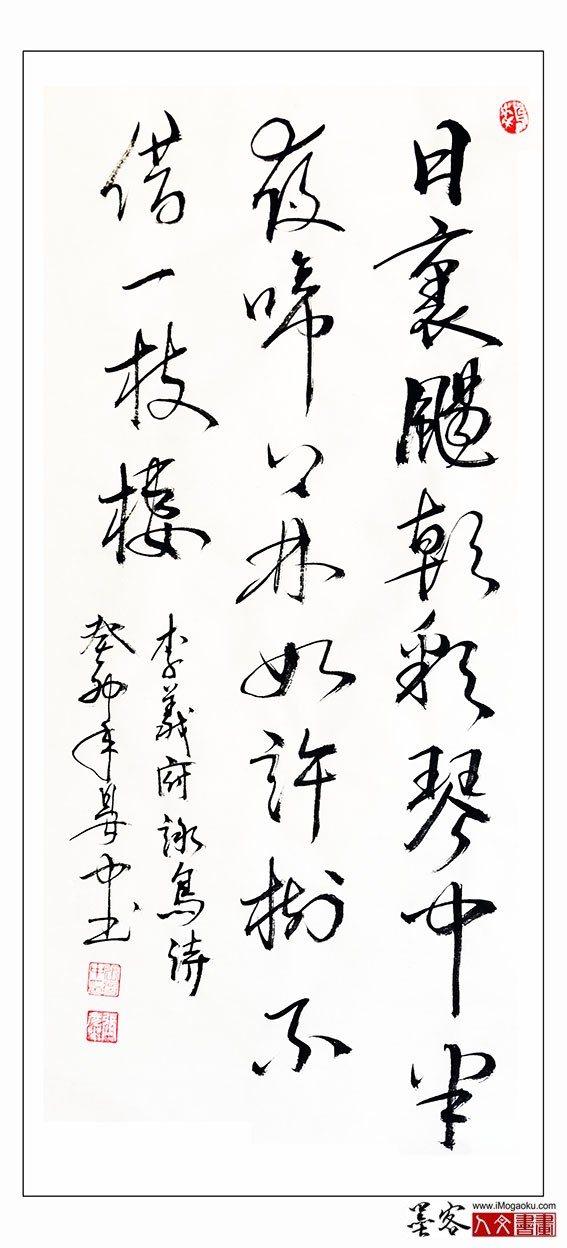 日裏颺朝彩琴中半
夜啼上林如許樹不
借一枝棲
李義府詠烏詩
癸卯年晏中书
墨客
www.iMogaoku.com
人文書畫